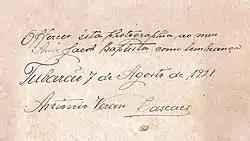 Offereço esta photographia, ao meu
Jacob Baptista como lembrança
Tubarão 7 de Agosto de 1921
Antonio Cascaes